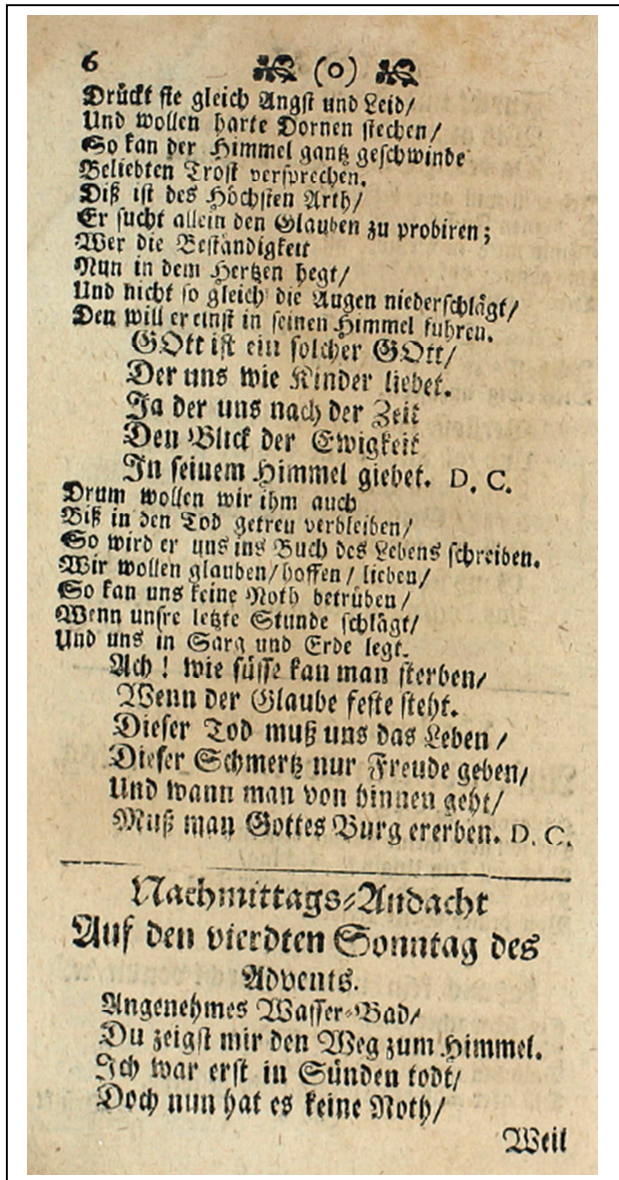 6 (o)
Drückt sie gleich Angst und Leid/
Und wollen harte Dornen stechen/
So kan der Himmel gantz geschwinde
Beliebten Trost versprechen.
Diß ist des Höchsten Arth/
Er sucht allein den Glauben zu probiren;
Wer die Beständigkeit
Nun in dem Hertzen hegt/
Und nicht so gleich die Augen niederschlägt/
Den will er einst in seinen Himmel führen.
GOtt ist ein solcher GOtt/
Der uns wie Kinder liebet.
Ja der uns nach der Zeit
Den Blick der Ewigkeit
In seinem Himmel giebet. D. C.
Drum wollen wir ihm auch
Biß in den Tod getreu verbleiben/
So wird er uns ins Buch des Lebens schreiben.
Wir wollen glauben/ hoffen/ lieben/
So kan uns keine Noth betrüben/
Wenn unsre letzte Stunde schlägt/
Und uns in Sarg und Erde legt.
Ach! wie süsse kan man sterben/
Wenn der Glaube feste steht.
Dieser Tod muß uns das Leben/
Dieser Schmertz nur Freude geben/
Und wann man von hinnen geht/
Muß man Gottes Burg ererben. D. C.
Nachmittags-Andacht
Auf den vierdten Sonntag des
Advents.
Angenehmes Wasser-Bad/
Du zeigst mir den Weg zum Himmel.
Ich war erst in Sünden todt/
Doch nun hat es keine Noth/
Weil